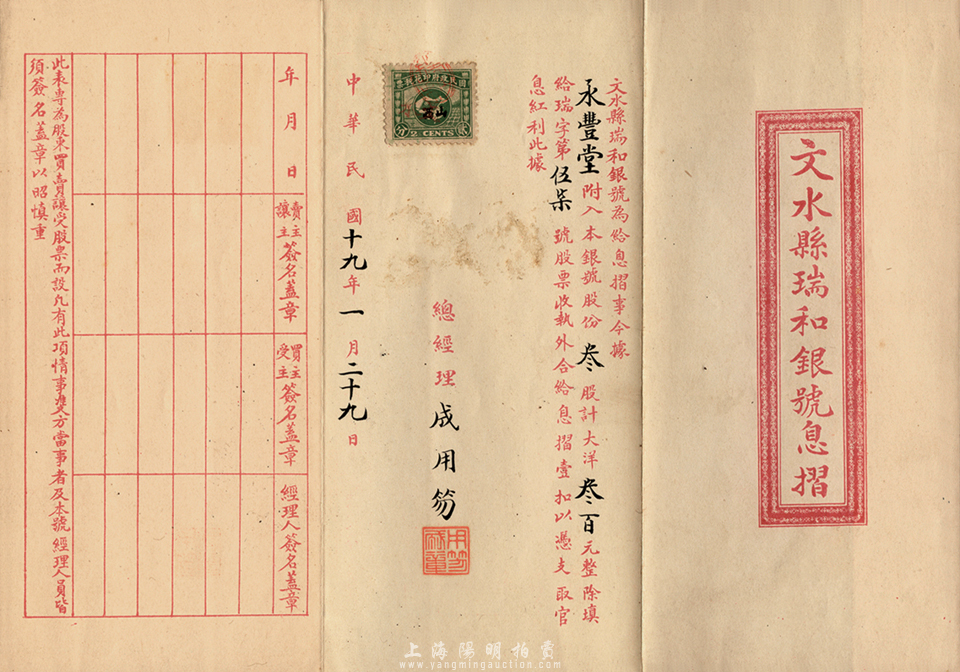 文水縣瑞和銀號息摺
文水縣瑞和銀號為給息摺事今據
永豐堂附入本銀號股份叁股計大洋叁百元整除填
給瑞字第伍柒號股票收執外合給息摺壹扣以憑支取官
息紅利此據
總經理 成用笏
國民政府印花稅票
山西
2 CENTS
中華民國十九年一月二十九日
年月日
賣主讓主簽名蓋章
買主受主簽名蓋章
經理人簽名蓋章
此表專為股東買賣讓受股票而設凡有此項情事雙方當事者及本號經理人員皆
須簽名蓋章以昭慎重
上海陽明拍賣
www.yangmingauction.com